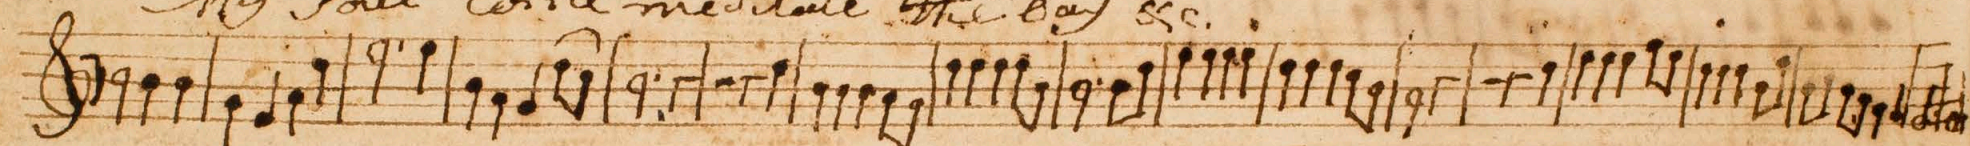 My Soul come meditate the day &c.